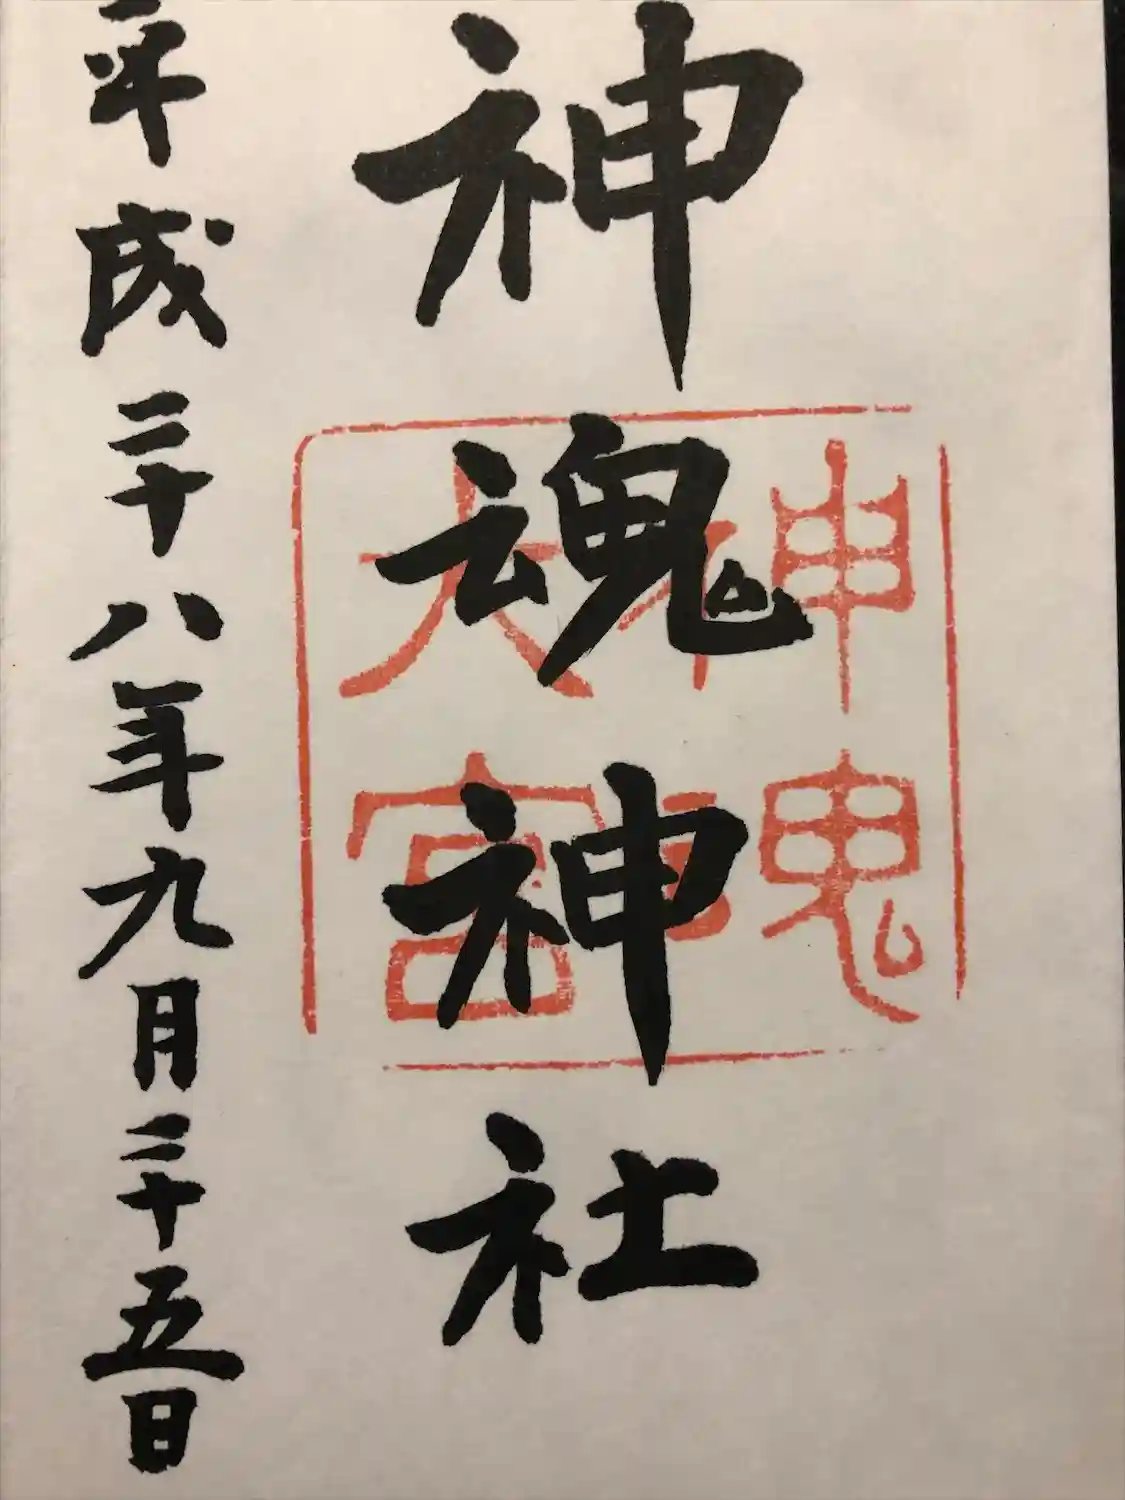 神魂神社
神魂
神社
大宮
平成二十八年九月二十五日